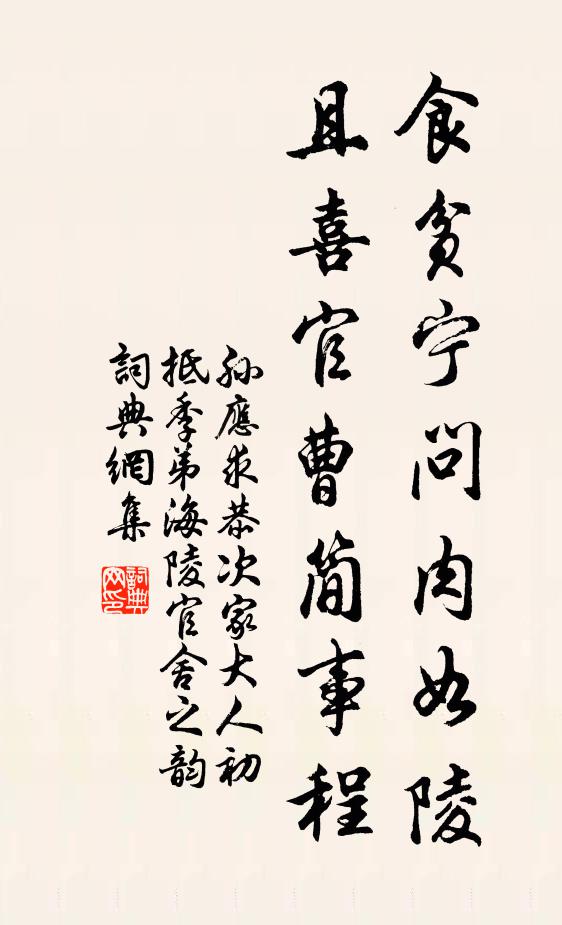 食貧宁問肉如陵
且喜官曹簡事程
孫應求恭次家大人初
抵季弟海陵官舍之韵
詞典網集
詞典
网印